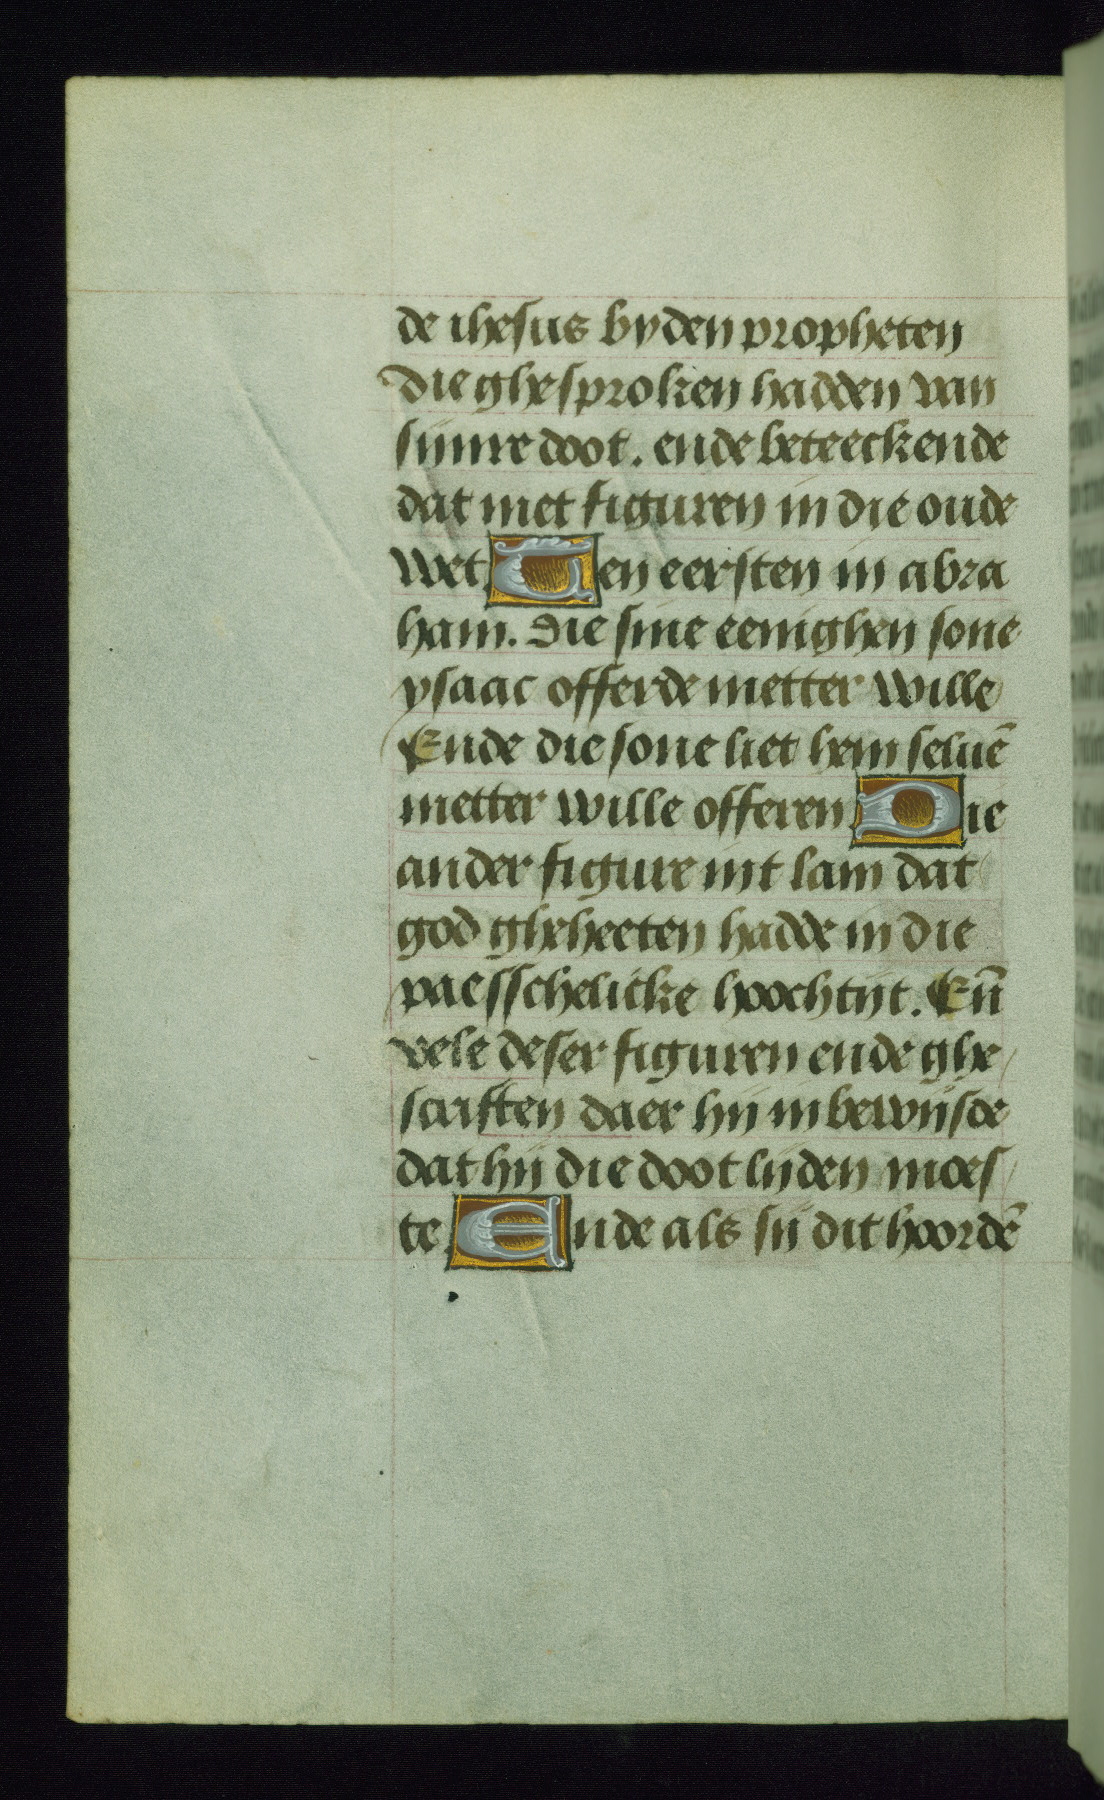 de ihesus by den propheten
die ghesproken hadden van
sijnre doot. ende beteeckende
dat met figuren in die oude
wet Ten eersten in abra
ham. Die sine eenighen sone
ysaac offerde metter wille
Ende die sone liet hem seluē
metter wille offeren Die
ander figure int lam dat
god gheheeten hadde in die
paesschelicke hoochtijt. En̄
vele deser figuren ende ghe
scriften daer hij in bewijsde
dat hij die doot lijden moes
te Ende als sij dit hoordē